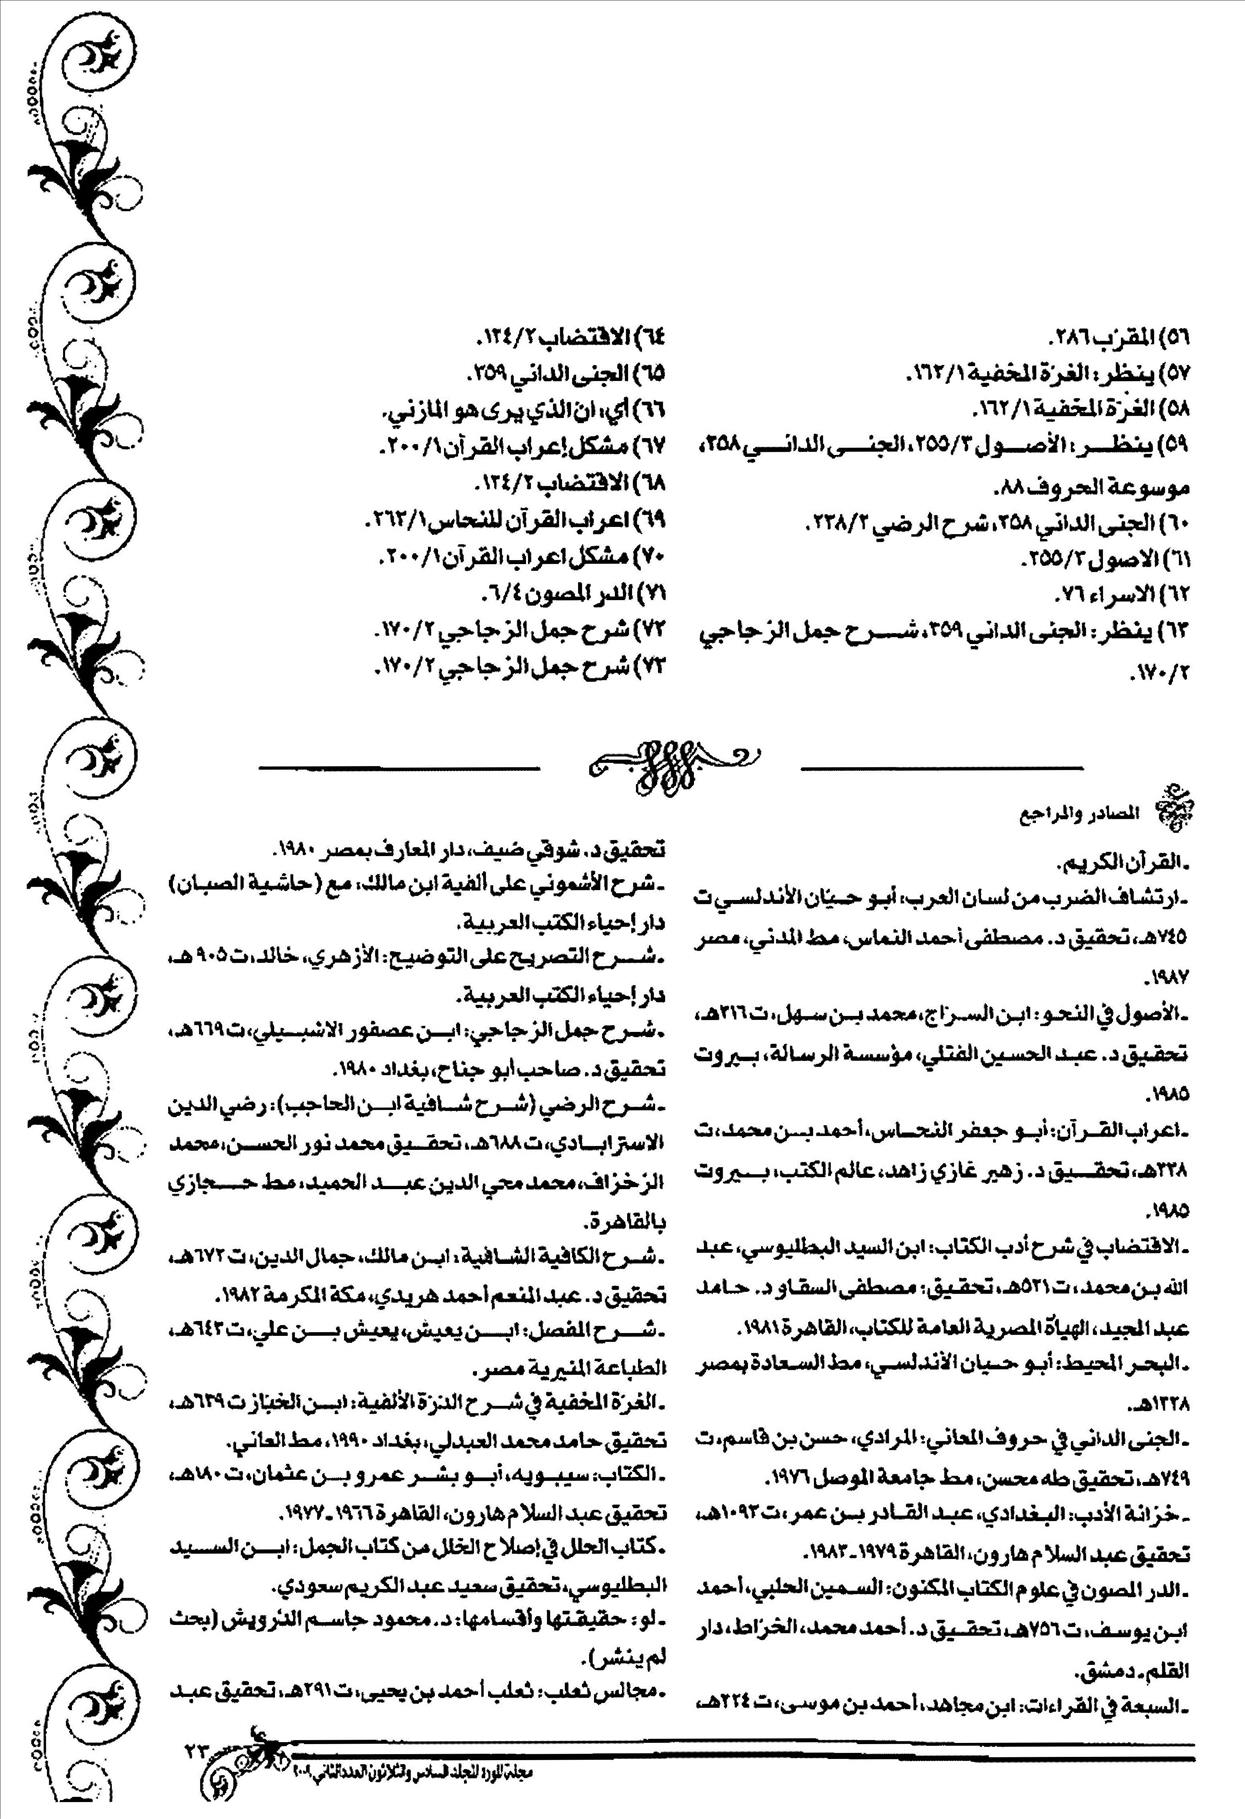 ٥٦) المقرّب ٢٨٦.
٥٧) ينظر: الغرّة المخفية ١٦٢/١.
٥٨) الغرّة المخفية ١٦٢/١.
٥٩) ينظر: الأصول ٢٥٥/٣، الجنى الداني ٣٥٨،
موسوعة الحروف ٨٨.
٦٠) الجنى الداني ٣٥٨، شرح الرضي ٢٣٨/٢.
٦١) الاصول ٢٥٥/٣.
٦٢) الاسراء ٧٦.
٦٣) ينظر: الجنى الداني ٣٥٩، شرح جمل الزجاجي
١٧٠/٢.
٦٤) الاقتضاب ١٣٤/٢.
٦٥) الجنى الداني ٣٥٩.
٦٦) أي: ان الذي يرى هو المازني.
٦٧) مشكل إعراب القرآن ٢٠٠/١.
٦٨) الاقتضاب ١٣٤/٢.
٦٩) اعراب القرآن للنحاس ٢٦٢/١.
٧٠) مشكل اعراب القرآن ٢٠٠/١.
٧١) الدر المصون ٦/٤.
٧٢) شرح جمل الزجاجي ١٧٠/٢.
٧٣) شرح جمل الزجاجي ١٧٠/٢.
المصادر والمراجع
ـ القرآن الكريم.
ـ ارتشاف الضرب من لسان العرب: أبو حيّان الأندلسي ت
٧٤٥هـ، تحقيق د. مصطفى أحمد النماس، مط المدني، مصر
١٩٨٧.
ـ الأصول في النحو: ابن السرّاج، محمد بن سهل، ت ٣١٦هـ،
تحقيق د. عبد الحسين الفتلي، مؤسسة الرسالة، بيروت
١٩٨٥.
ـ اعراب القرآن: أبو جعفر النحاس، أحمد بن محمد، ت
٣٣٨هـ، تحقيق د. زهير غازي زاهد، عالم الكتب، بيروت
١٩٨٥.
ـ الاقتضاب في شرح أدب الكتاب: ابن السيد البطليوسي، عبد
الله بن محمد، ت ٥٢١هـ، تحقيق: مصطفى السقا و د. حامد
عبد المجيد، الهيأة المصرية العامة للكتاب، القاهرة ١٩٨١.
ـ البحر المحيط: أبو حيان الأندلسي، مط السعادة بمصر
١٣٢٨هـ.
ـ الجنى الداني في حروف المعاني: المرادي، حسن بن قاسم، ت
٧٤٩هـ، تحقيق طه محسن، مط جامعة الموصل ١٩٧٦.
ـ خزانة الأدب: البغدادي، عبد القادر بن عمر، ت ١٠٩٣هـ،
تحقيق عبد السلام هارون، القاهرة ١٩٧٩ـ١٩٨٣.
ـ الدر المصون في علوم الكتاب المكنون: السمين الحلبي، أحمد
ابن يوسف، ت ٧٥٦هـ، تحقيق د. أحمد محمد، الخرّاط، دار
القلم ـ دمشق.
ـ السبعة في القراءات: ابن مجاهد، أحمد بن موسى، ت ٣٢٤هـ،
تحقيق د. شوقي ضيف، دار المعارف بمصر ١٩٨٠.
ـ شرح الأشموني على ألفية ابن مالك: مع (حاشية الصبان)
دار إحياء الكتب العربية.
ـ شرح التصريح على التوضيح: الأزهري، خالد، ت ٩٠٥هـ،
دار إحياء الكتب العربية.
ـ شرح جمل الزجاجي: ابن عصفور الاشبيلي، ت ٦٦٩هـ،
تحقيق د. صاحب أبو جناح، بغداد ١٩٨٠.
ـ شرح الرضي (شرح شافية ابن الحاجب): رضي الدين
الاسترابادي، ت ٦٨٨هـ، تحقيق محمد نور الحسن، محمد
الزخزاف، محمد محي الدين عبد الحميد، مط حجازي
بالقاهرة.
ـ شرح الكافية الشافية: ابن مالك، جمال الدين، ت ٦٧٢هـ،
تحقيق د. عبد المنعم أحمد هريدي، مكة المكرمة ١٩٨٢.
ـ شرح المفصل: ابن يعيش، يعيش بن علي، ت ٦٤٣هـ،
الطباعة المنيرية مصر.
ـ الغرّة المخفية في شرح الدرّة الألفية: ابن الخبّاز ت ٦٣٩هـ،
تحقيق حامد محمد العبدلي، بغداد ١٩٩٠، مط العاني.
ـ الكتاب: سيبويه، أبو بشر عمرو بن عثمان، ت ١٨٠هـ،
تحقيق عبد السلام هارون، القاهرة ١٩٦٦ـ١٩٧٧.
ـ كتاب الحلل في إصلاح الخلل من كتاب الجمل: ابن السيد
البطليوسي، تحقيق سعيد عبد الكريم سعودي.
ـ لو: حقيقتها وأقسامها: د. محمود جاسم الدّرويش (بحث
لم ينشر).
ـ مجالس ثعلب: ثعلب أحمد بن يحيى، ت ٢٩١هـ، تحقيق عبد
٢٣
مجلة المورد المجلد السادس والثلاثون العدد الثاني ٢٠٠٩